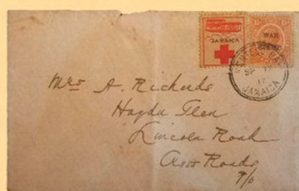 JAMAICA
WAR
JAMAICA
Mrs A. Richards
Hagda Glen
Lincoln Road
Cross Roads
P/o